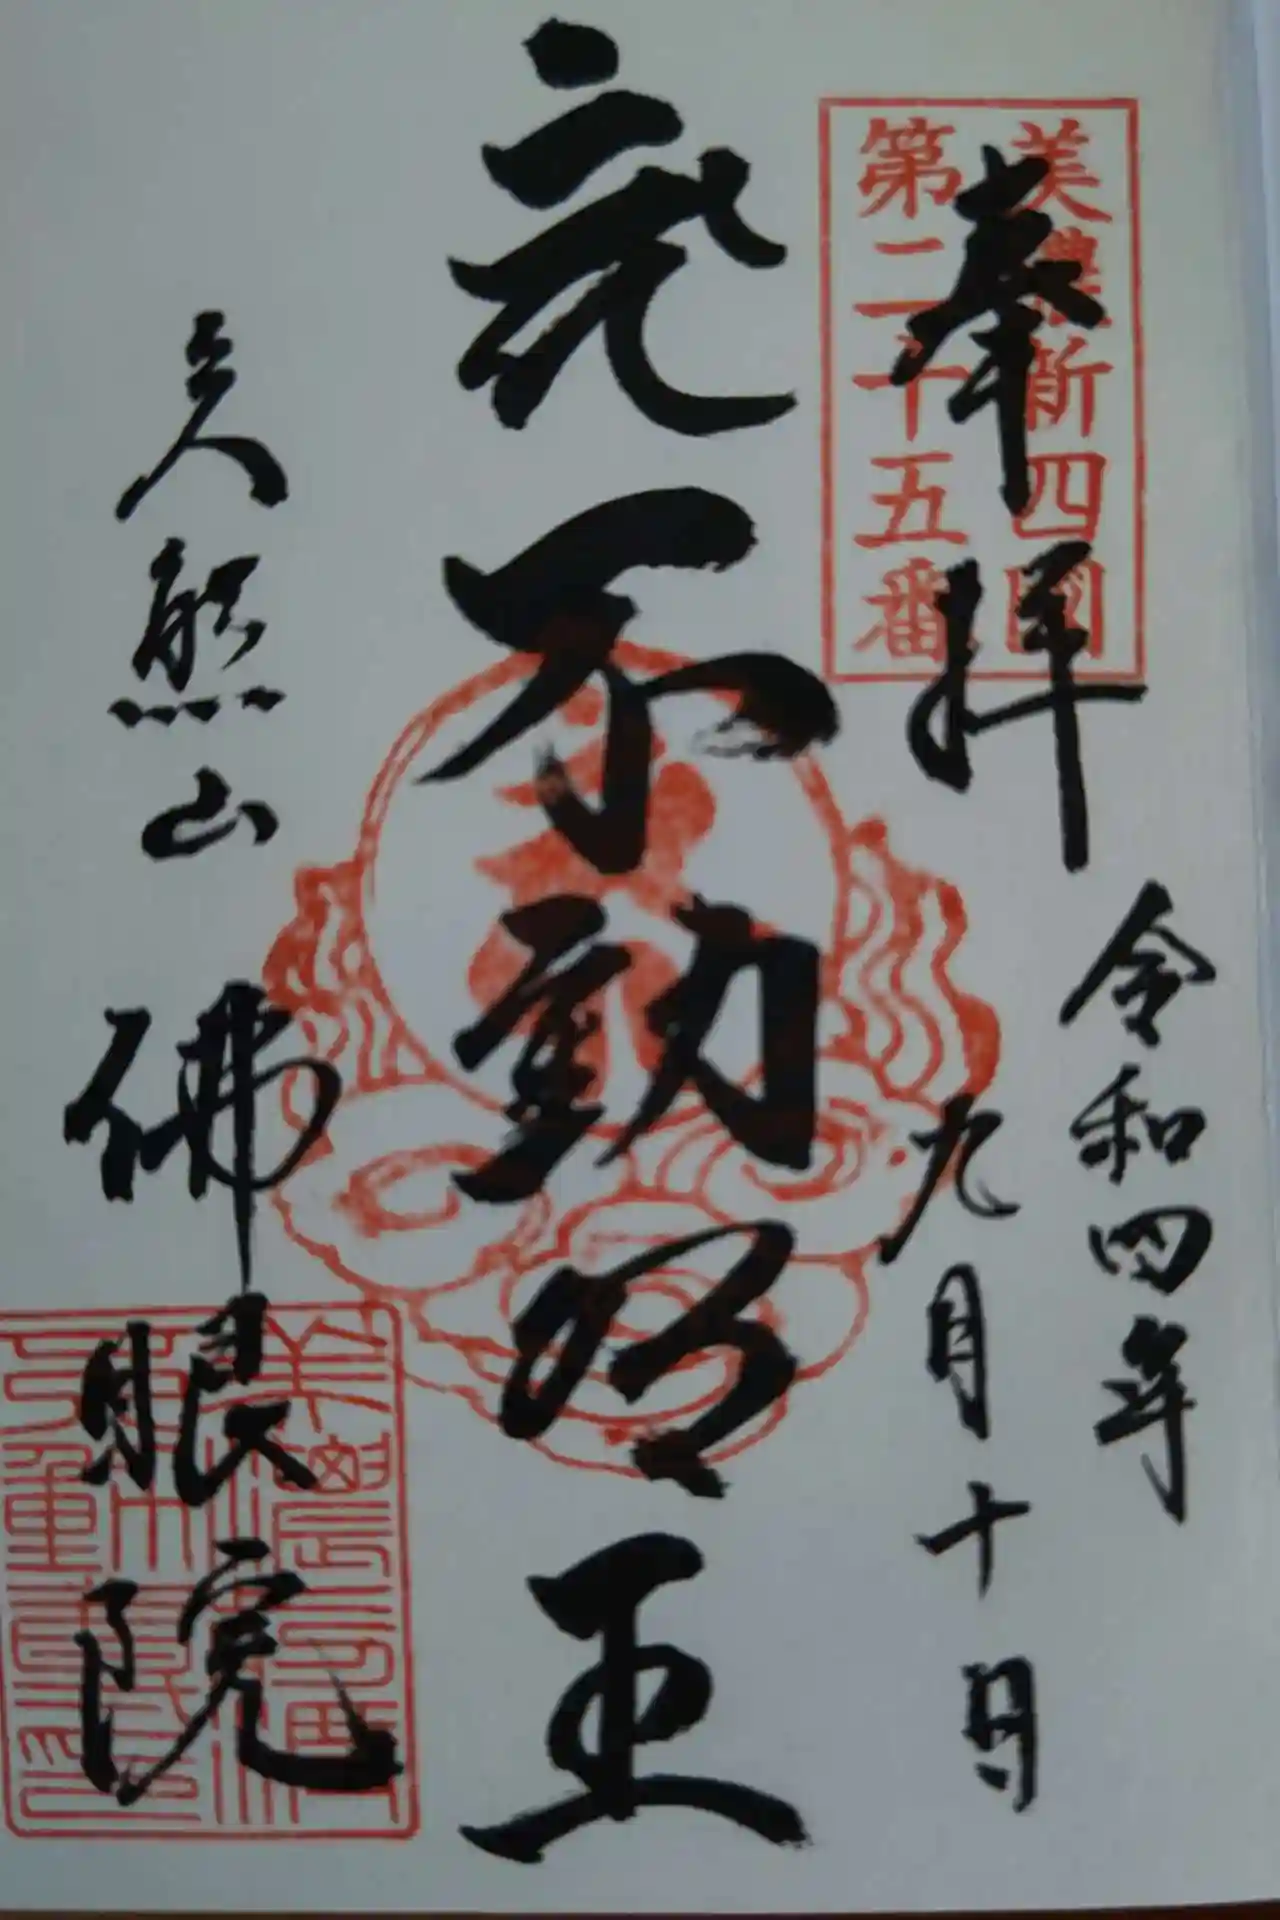 美濃新四國
第二十五番
奉拝
令和四年
九月十日
不動明王
熊山
佛眼院